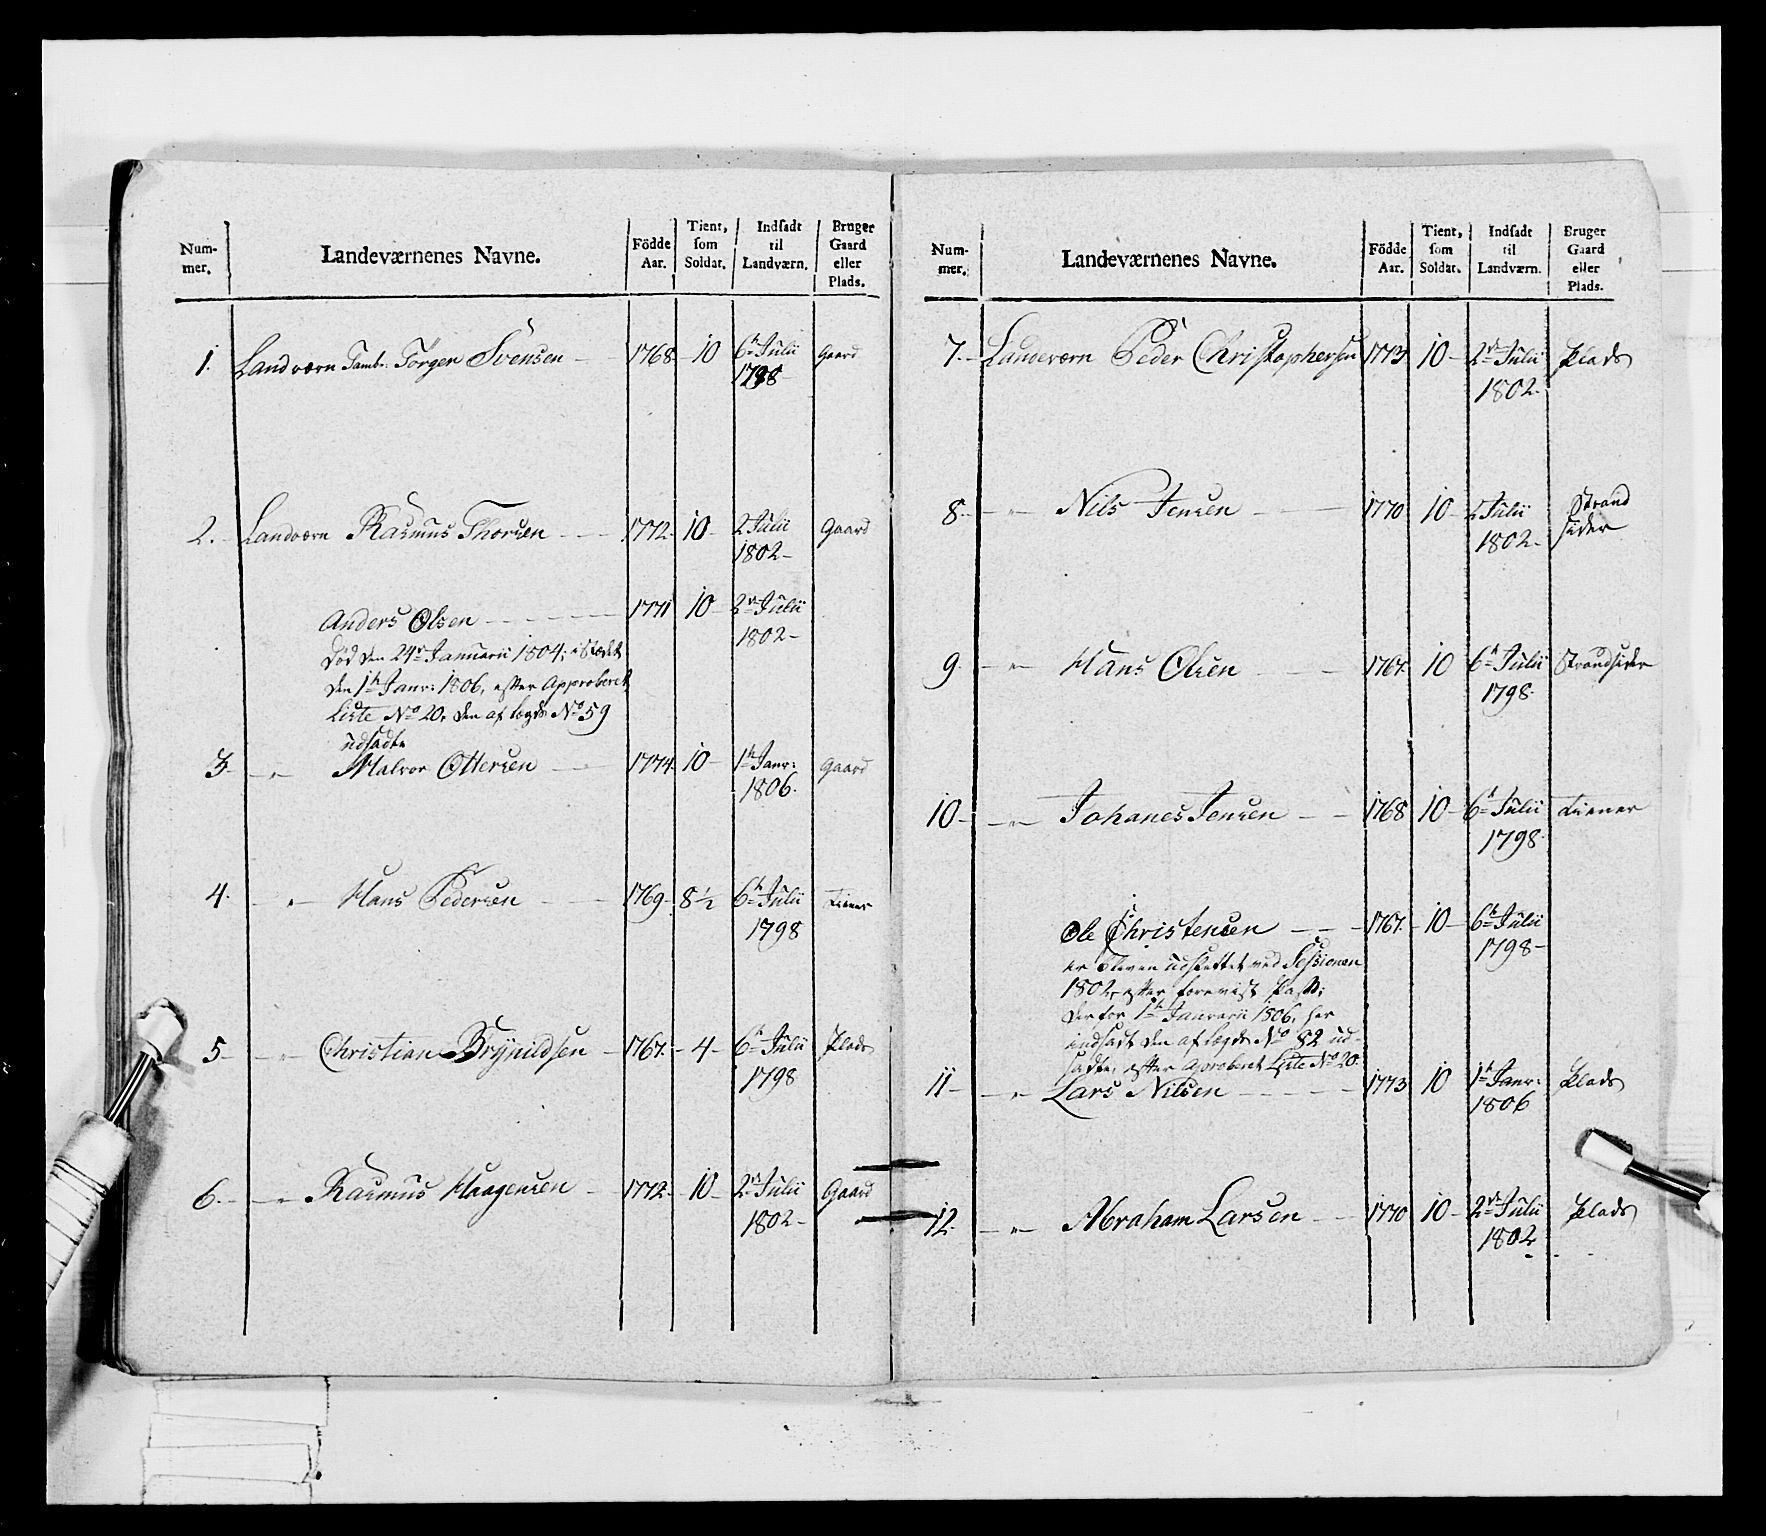 Num-
mer.
Landeværnenes Navne.
Födde
Aar.
Tient,
som
Soldat.
Indsadt
til
Landværn.
Bruger
Gaard
eller
Plads.
1. Landværn Tamb: Torger Svensen 1768 10 6te Julii Gaard
1798
2. Landværn Rasmus Thorsen 1772 10 2 Julii Gaard
1802
Anders Olsen 1771 10 2den Julii
1802
död den 24de Januarii 1804; i Stædet
den 1te Janr: 1806, efter Approberet
Liste No 20, den af Lægds No 59
udsadte
3. Halvor Ottersen 1774 10 1te Janr: Gaard
1806.
4. Hans Pedersen 1769 8½ 6te Julii Tiener
1798
5 Christian Brynildsen 1767 4 6te Julii Plads
1798
6. Rasmus Haagensen 1772 10 2den Julii Gaard
1802
Num-
mer.
Landeværnenes Navne.
Födde
Aar.
Tient,
som
Soldat.
Indsadt
til
Landværn.
Bruger
Gaard
eller
Plads.
7. Landeværn Peder Christophersen 1773 10 2den Julii Plads
1802
8. Nils Jensen 1770 10 2 Julii Strand
1802 sider
9. Hans Olsen 1767 10 6te Julii Strandsider
1798
10 Johanes Jensen 1768 10 6te Julii Tiener
1798
Ole Christensen 1767 10 6te Julii
1798
er bleven udslettet ved Sessionen
1802, efter foreviist Pass;
derfor 1te Januarii 1806, her
indsadt den af Lægds No 82 ud-
sadte, efter Aproberet Liste No 20.
11 Lars Nilsen 1773 10 1te Janr: Plads
1806
12. Abraham Larsen 1770 10 2den Julii Plads
1802